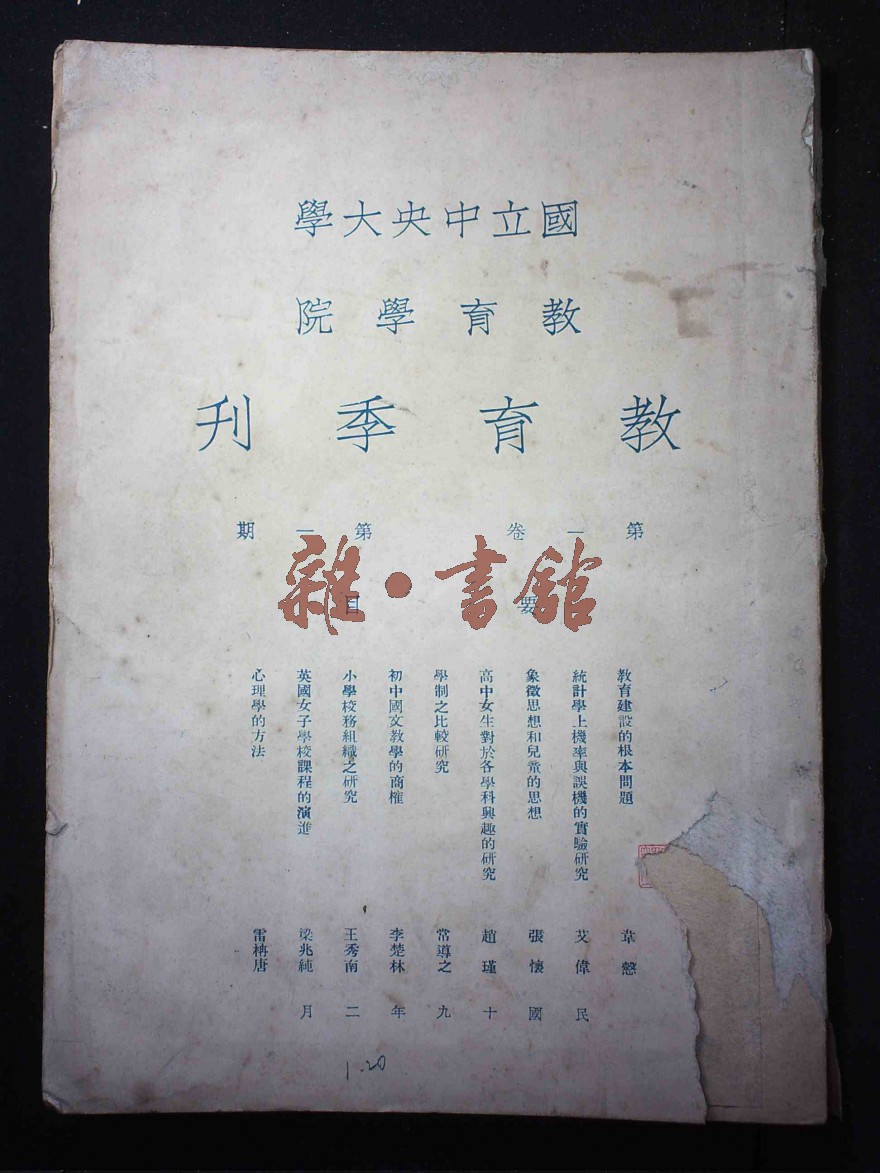 國立中央大學
教育學院
教育季刊
第一卷 第一期
要目
雜·書館
教育建設的根本問題 韋慤
統計學上機率與誤機的實驗研究 艾偉
象徵思想和兒童的思想 張懷
高中女生對於各學科興趣的研究 趙瑾
學制之比較研究 常導之
初中國文教學的商榷 李楚林
小學校務組織之研究 王秀南
英國女子學校課程的演進 梁兆純
心理學的方法 雷栴唐
民國十九年二月
1.20